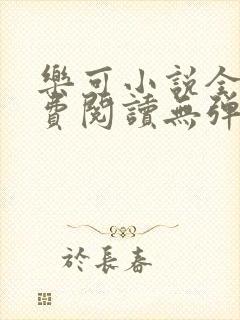 樂可小說全
費閱讀無彈
於長春